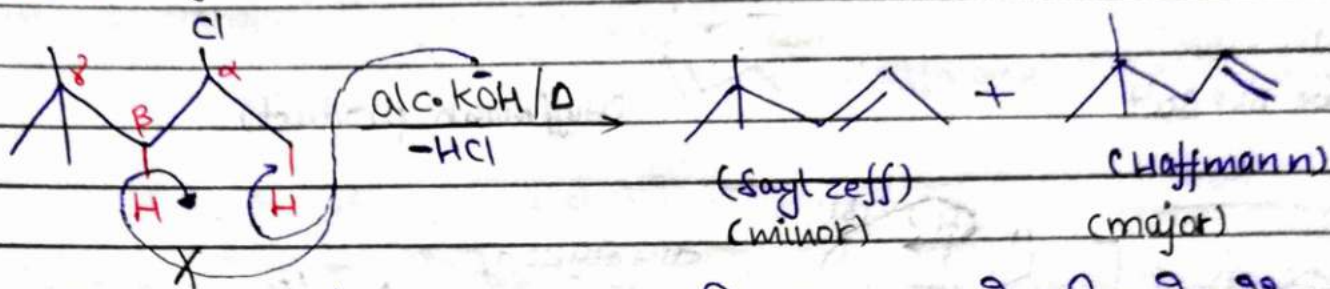 Cl
γ α
β
H H
X
alc. KOH/Δ
-HCl
+
(Saytzeff)
(minor)
(Haffmann)
(major)